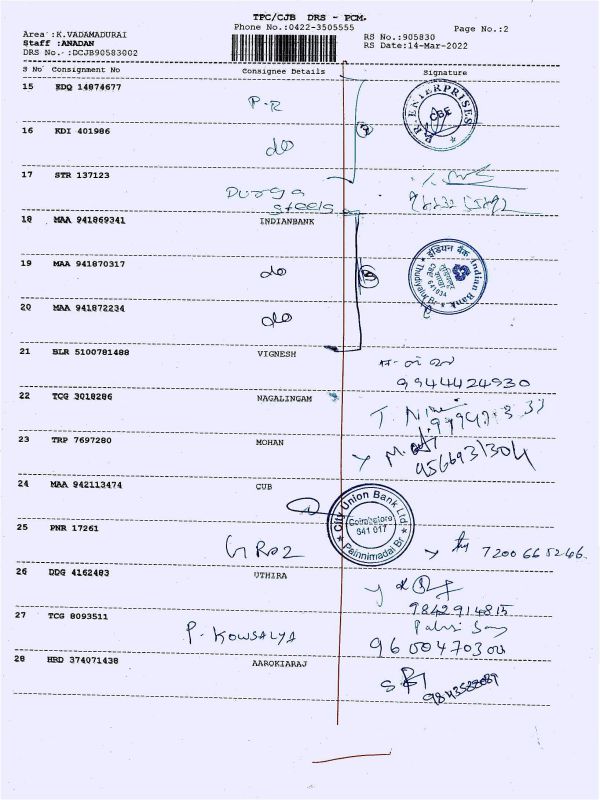 TPC/CJB DRS - PCM.
Phone No.:0422-3505555
Page No.:2
Area :K.VADAMADURAI
Staff :ANADAN
RS No.:905830
DRS No.-:DCJB90583002
RS Date:14-Mar-2022
S No Consignment No Consignee Details Signature
15 EDQ 14874677 P.R
P.R. ENTERPRISES CBE
16 KDI 401986 do
17 STR 137123 Durga Steels
18 MAA 941869341 INDIANBANK
19 MAA 941870317 do
इंडियन बैंक Indian Bank
CBE 641034
20 MAA 941872234 do
21 BLR 5100781488 VIGNESH
9944424930
22 TCG 3018286 NAGALINGAM
23 TRP 7697280 MOHAN
9566931304
24 MAA 942113474 CUB
City Union Bank Ltd.
Coimbatore
641 017
Pannimadai Br
25 PNR 17261
7200665266
26 DDG 4162483 UTHIRA
9842914815
27 TCG 8093511 P. KOWSALYA
28 HRD 374071438 AAROKIARAJ